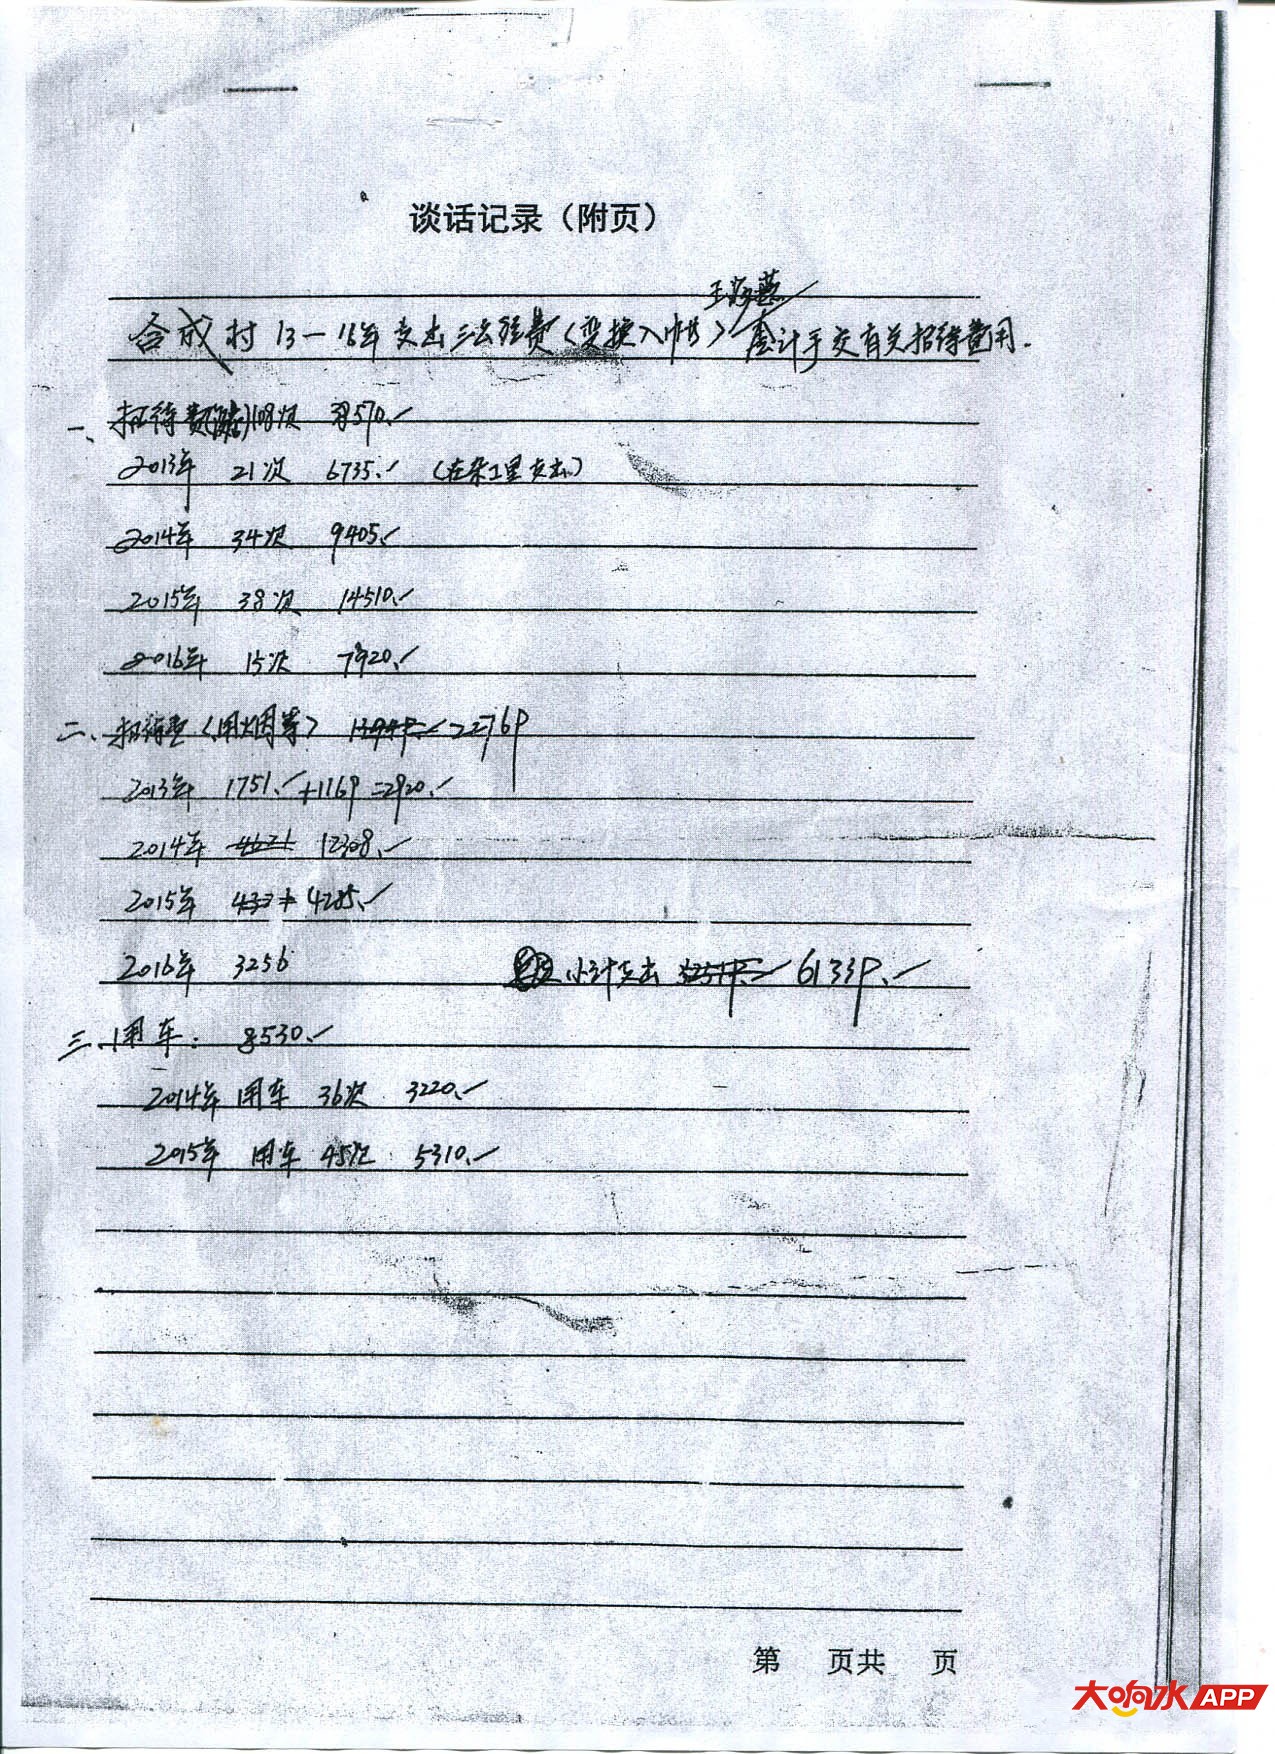 谈话记录（附页）
王海燕
合成村 13—16年支出三公经费（变换入帐）会计手交有关招待费用.
一、招待费 108次 38570.
2013年 21次 6735. （在杂工里支出）
2014年 34次 9405.
2015年 38次 14510.
2016年 15次 7920.
二、招待费（用烟等） 22769
2013年 1751.+1169=2920.
2014年 4621 12308.
2015年 4285.
2016年 3256 小计支出 61339.
三、用车： 8530.
2014年 用车 36次 3220.
2015年 用车 45次 5310.
第 页共 页
大响水APP